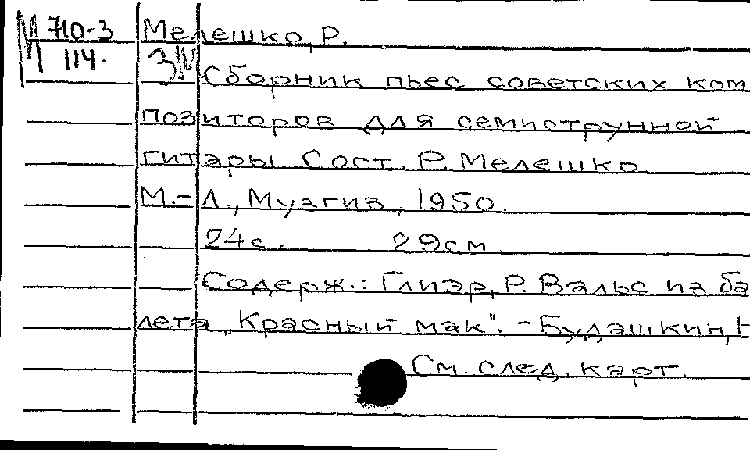 М 710-3 Мелешко, Р.
114. 3М
Сборник пьес советских ком
позиторов для семиструнной
гитары Сост. Р. Мелешко
М.-Л., Музгиз, 1950.
24с. 29см
Содерж.: Глиэр, Р. Вальс из ба
лета „Красный мак". - Будашкин, Н
См. след. карт.